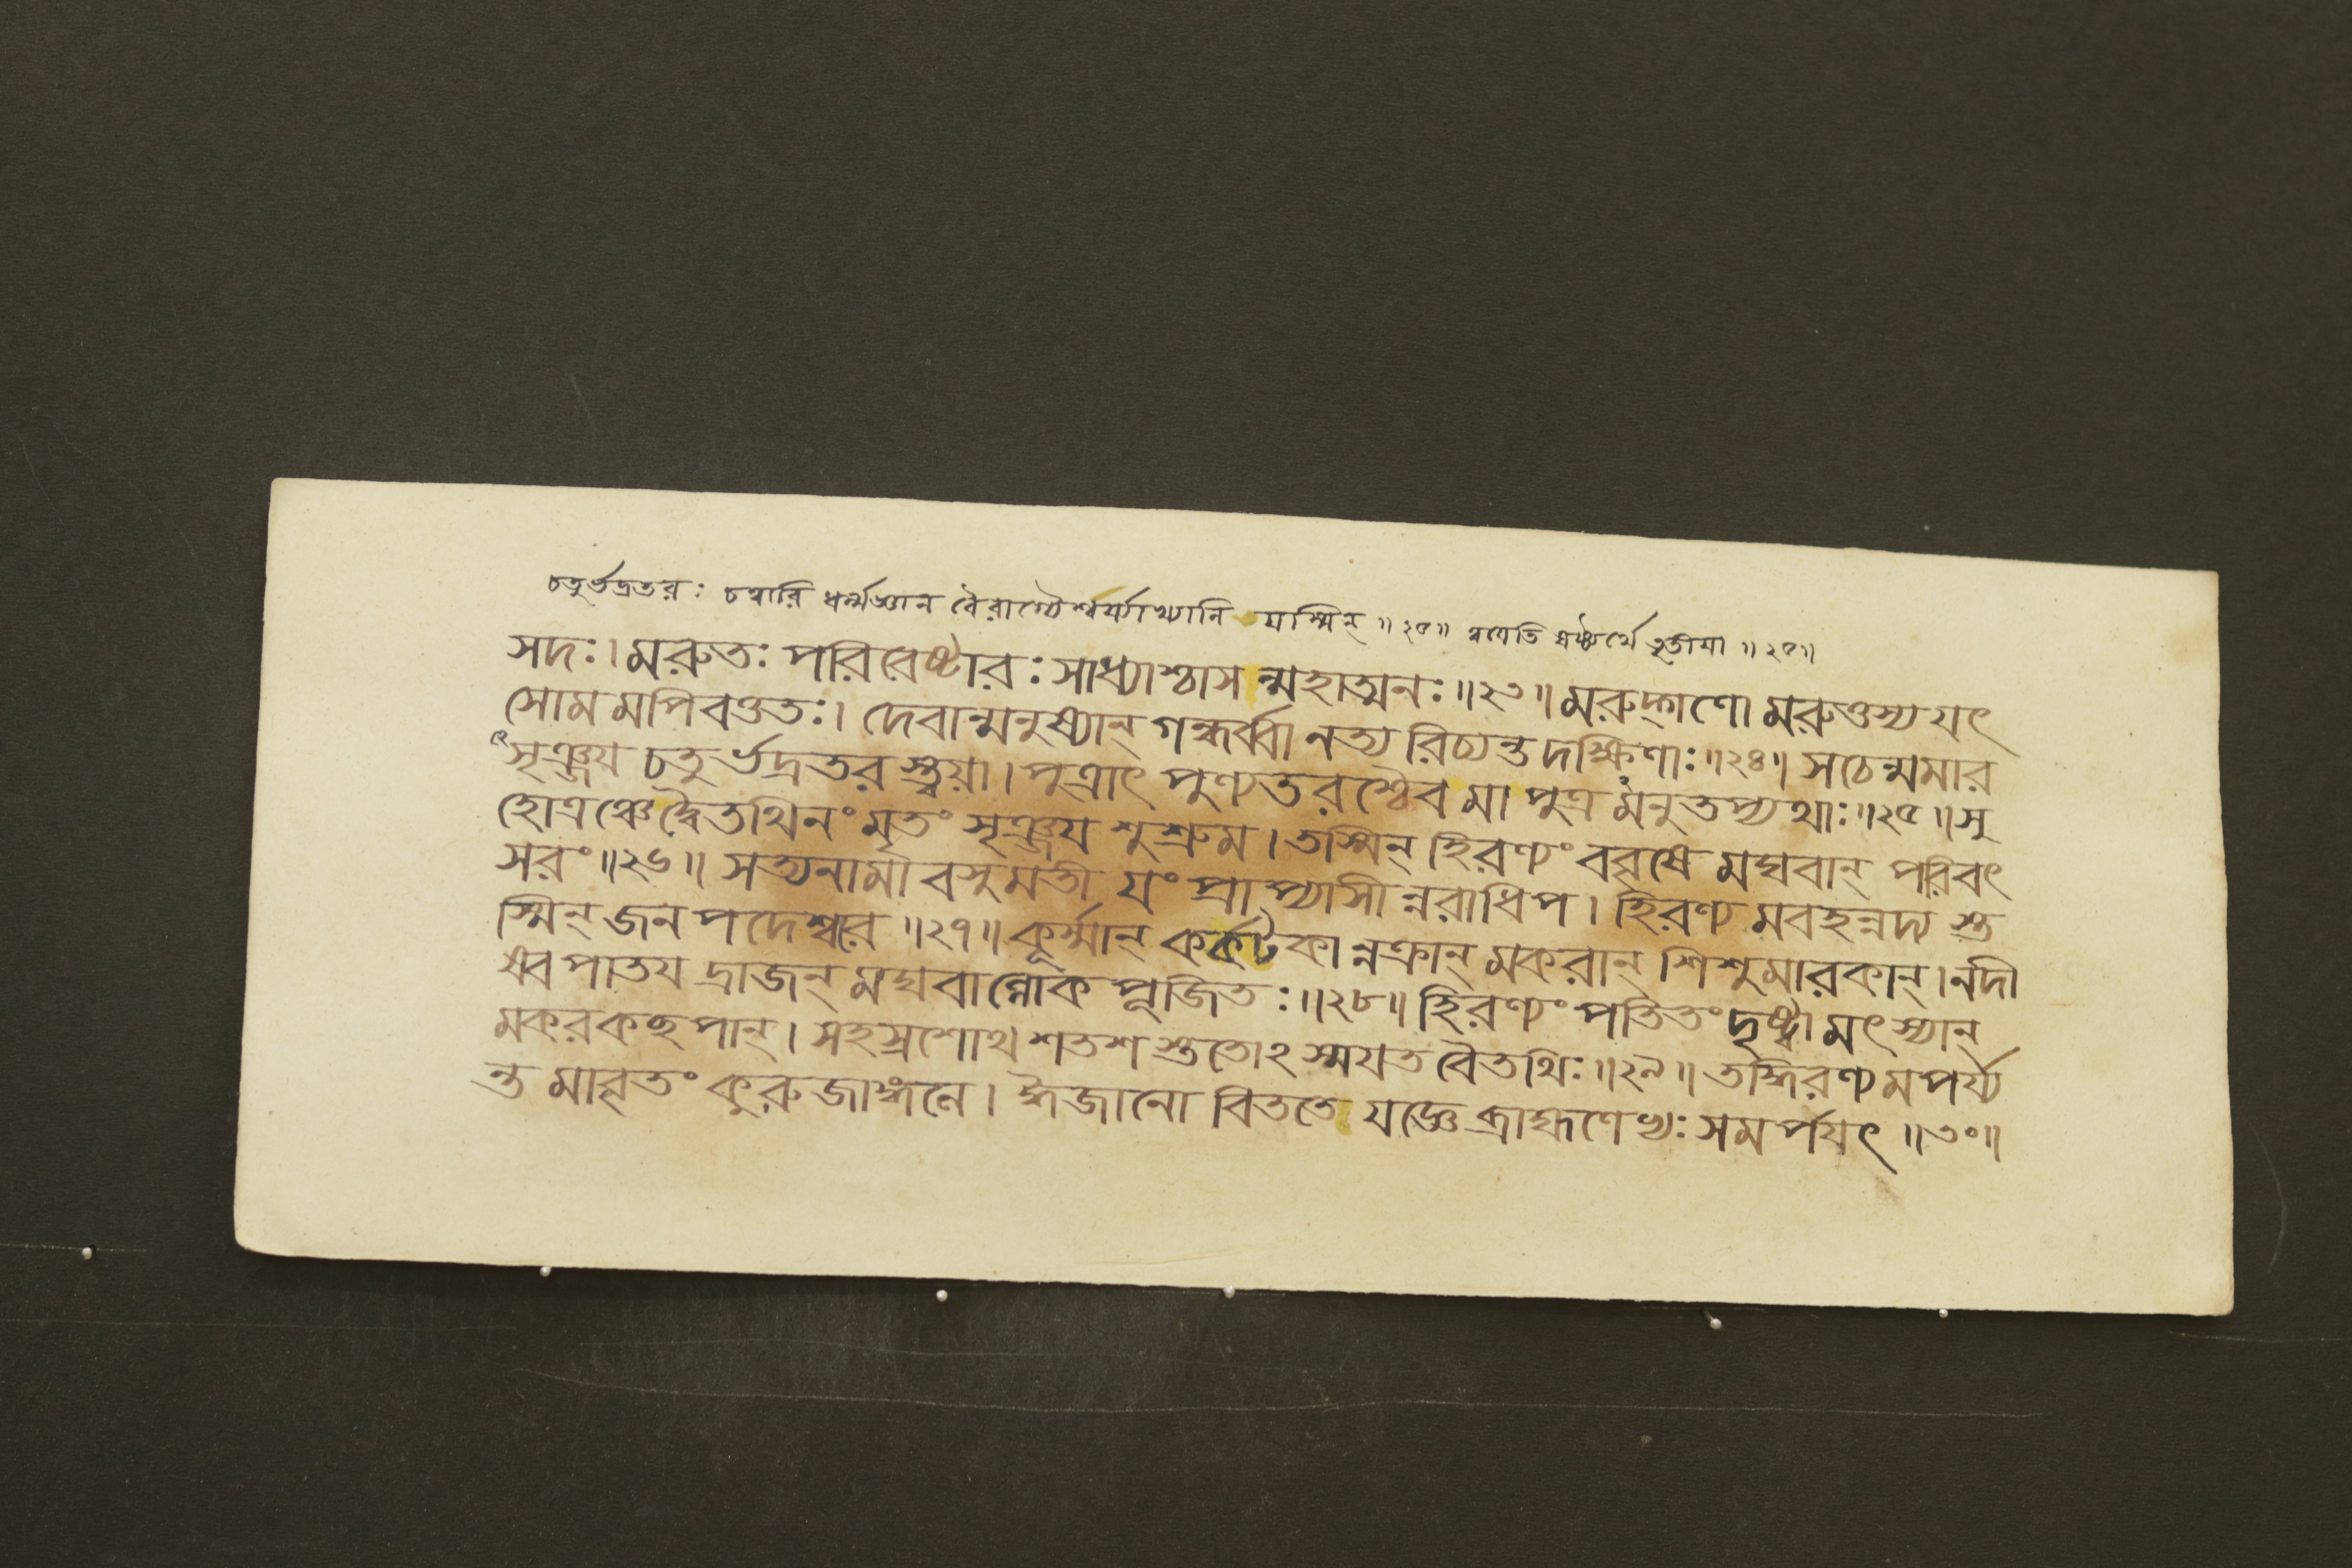 চতুর্ভদ্রতরঃ চত্বারি ধর্ম্মজ্ঞান বৈরাগ্যৈশ্বর্য্যাখ্যানি যস্মিন্ ॥২৫॥ ত্বয়েতি ষষ্ঠ্যর্থে তৃতীয়া ॥২৫॥
সদঃ। মরুতঃ পরিবেষ্টারঃ সাধ্যাশ্চাসন্মহাত্মনঃ ॥২৩॥ মরুদ্গণো মরুত্তস্য যৎ
সোমমপিবত্ততঃ। দেবান্মনুষ্যান্ গন্ধর্ব্বানত্যরিচ্যন্ত দক্ষিণাঃ ॥২৪॥ সচেন্মমার
সৃঞ্জয চতুর্ভদ্রতরস্ত্বয়া। পুত্রাৎ পুণ্যতরশ্চৈব মা পুত্রমনুতপ্যথাঃ ॥২৫॥ সু
হোত্রঞ্চেদ্বৈতথিনং মৃতং সৃঞ্জয শুশ্রুম। তস্মিন্ হিরণ্যং ববৃষে মঘবান্ পরিবৎ
সরং ॥২৬॥ সত্যনামা বসুমতী যং প্রাপ্যাসীন্নরাধিপ। হিরণ্যমবহন্নদ্যস্ত
স্মিন্ জনপদেশ্বরে ॥২৭॥ কূর্ম্মান্ কর্কটকান্নক্রান্ মকরান্ শিশুমারকান্। নদী
ষ্বপাতযদ্রাজন্ মঘবাল্লোকপূজিতঃ ॥২৮॥ হিরণ্যং পতিতং দৃষ্ট্বা মৎস্যান্
মকরকচ্ছপান্। সহস্রশোথ শতশস্ততোঽস্মযত বৈতথিঃ ॥২৯॥ তদ্ধিরণ্যমপর্য্য
ন্তমাবৃতং কুরুজাঙ্গলে। ঈজানো বিততে যজ্ঞে ব্রাহ্মণেভ্যঃ সমর্পযৎ ॥৩০॥